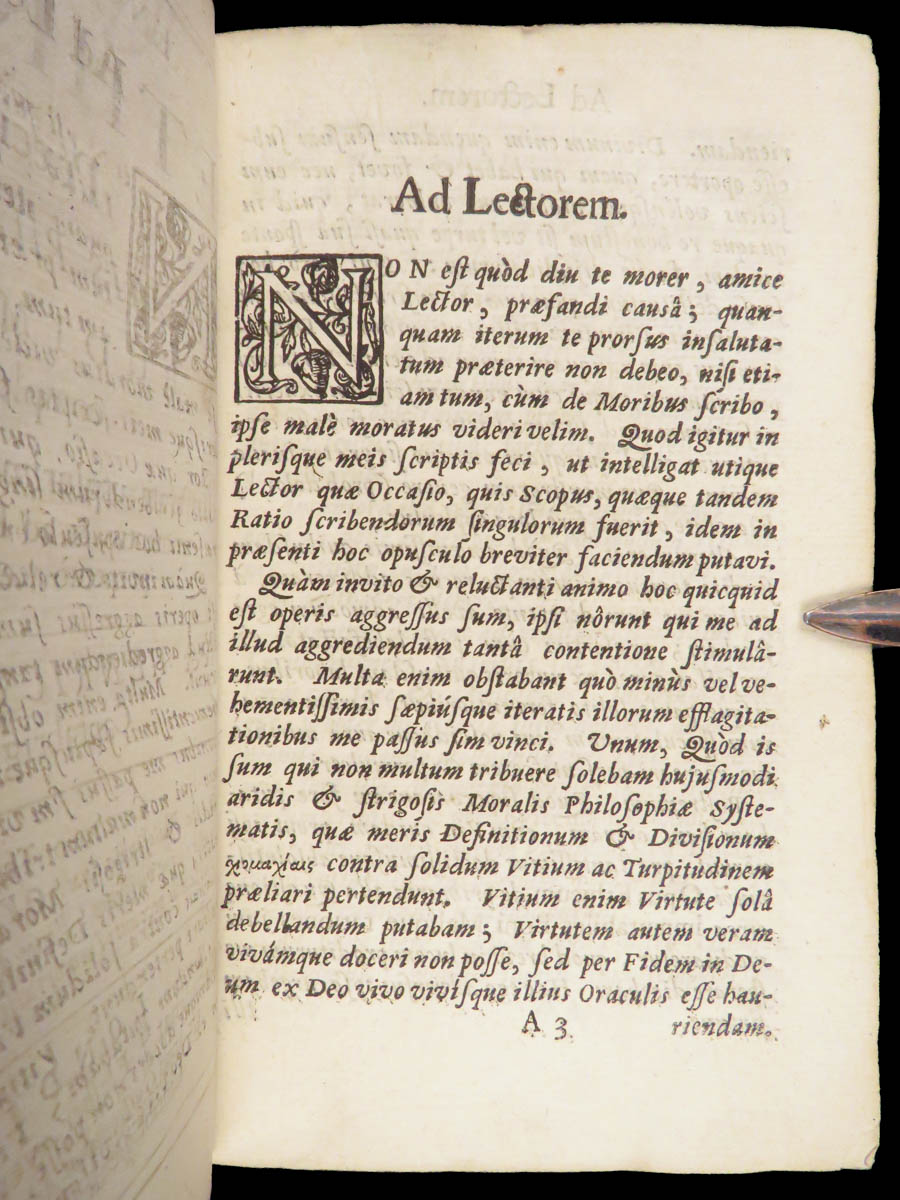 Ad Lectorem.
NON est quòd diu te morer, amice
Lector, præfandi causâ; quan-
quam iterum te prorsus insaluta-
tum præterire non debeo, nisi eti-
am tum, cùm de Moribus scribo,
ipse malè moratus videri velim. Quod igitur in
plerisque meis scriptis feci, ut intelligat utique
Lector quæ Occasio, quis Scopus, quæque tandem
Ratio scribendorum singulorum fuerit, idem in
præsenti hoc opusculo breviter faciendum putavi.
Quàm invito & reluctanti animo hoc quicquid
est operis aggressus sum, ipsi nôrunt qui me ad
illud aggrediendum tantâ contentione stimulâ-
runt. Multa enim obstabant quò minùs vel ve-
hementissimis sæpiúsque iteratis illorum efflagita-
tionibus me passus sim vinci. Unum, Quòd is
sum qui non multum tribuere solebam hujusmodi
aridis & strigosis Moralis Philosophiæ Syste-
matis, quæ meris Definitionum & Divisionum
contra solidum Vitium ac Turpitudinem
præliari pertendunt. Vitium enim Virtute solâ
debellandum putabam; Virtutem autem veram
vivámque doceri non posse, sed per Fidem in De-
um ex Deo vivo vivísque illius Oraculis esse hau-
A 3 riendam.